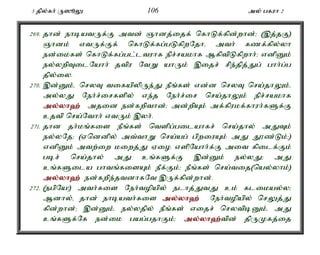 3 தில்கர் ருஸூலு 106 அல் பகரா 2
269. தான் நாடியவருக்கு அவன் ஞானத்தைக் கொடுக்கின்றான்; (இத்தகு)
ஞானம் எவருக்குக் கொடுக்கப்படுகிறதோ, அவர் கணக்கில்லா
நன்மைகள் கொடுக்கப்பட்டவராக நிச்சயமாக ஆகிவிடுகிறார்; எனினும்
நல்லறிவுடையோர் தவிர வேறு யாரும் இதைச் சிந்தித்துப் பார்ப்ப
தில்லை.
270. இன்னும், செலவு வகையிலிருந்து நீங்கள் என்ன செலவு செய்தாலும்,
அல்லது நேர்ச்சைகளில் எந்த நேர்ச்சை செய்தாலும் நிச்சயமாக
அல்லாஹ் அதனை நன்கறிவான்; அன்றியும் அக்கிரமக்காரர்களுக்கு
உதவி செய்வோர் எவரும் இலர்.
271. தான தர்மங்களை நீங்கள் வெளிப்படையாகச் செய்தால் அதுவும்
நல்லதே; (ஏனெனில் அவ்வாறு செய்யப் பிறரையும் அது தூண்டும்;)
எனினும் அவற்றை மறைத்து ஏழை எளியோர்க்கு அவை கிடைக்கும்
படிச் செய்தால் அது உங்களுக்கு இன்னும் நல்லது; அது
உங்களுடைய பாவங்களையும் நீக்கும்; நீங்கள் செய்வதை(யெல்லாம்)
அல்லாஹ் நன்கறிந்தவனாகவே இருக்கின்றான்.
272. (நபியே!) அவர்களை நேர்வழியில் நடாத்துவது உம் கடமையல்ல;
ஆனால், தான் நாடியவர்களை அல்லாஹ் நேர்வழியில் செலுத்து
கின்றான்; இன்னும், நல்லதில் நீங்கள் எதைச் செலவிடினும், அது
உங்களுக்கே நன்மை பயப்பதாகும்; அல்லாஹ்வின் திருமுகத்தை